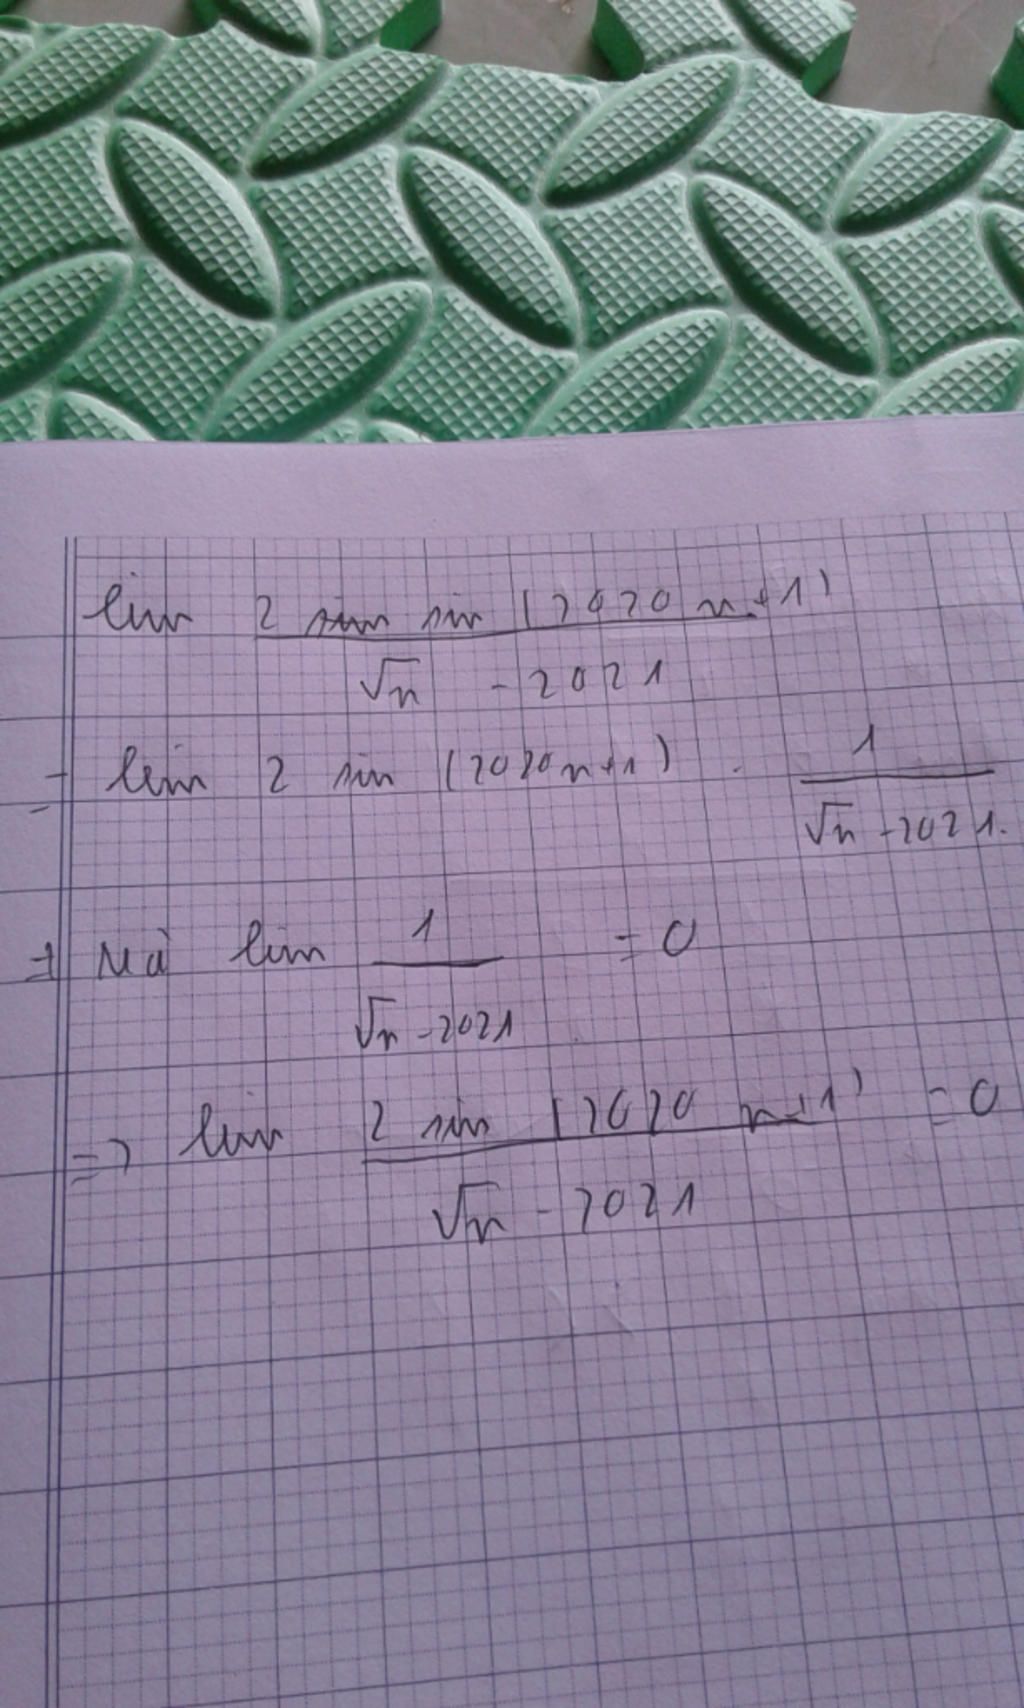 lim 2 sin sin (2020 n+1)
√n - 2021
= lim 2 sin (2020n+1) . 1
√n - 2021.
=) Mà lim 1 = 0
√n - 2021
=) lim 2 sin (2020 n+1) = 0
√n - 2021